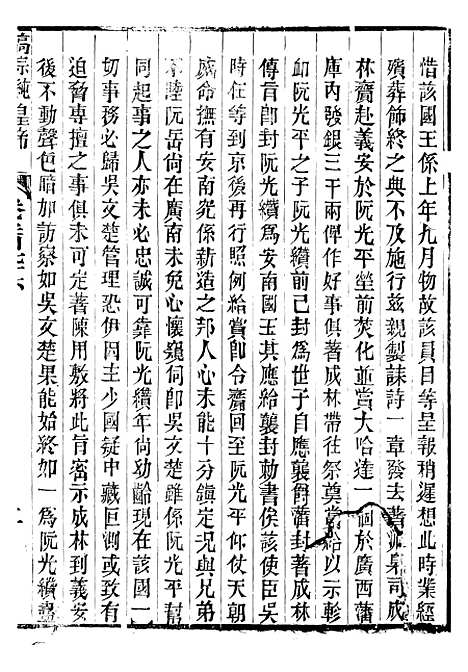 惜該國王係上年九月物故該員目等呈報稍遲想此時業經
殯葬飾終之典不及施行茲親製誄詩一章發去著派臬司成
林賫赴義安於阮光平塋前焚化並賞大哈達一個於廣西藩
庫內發銀三千兩俾作好事俱著成林帶往祭奠賞給以示軫
卹阮光平之子阮光纘前已封為世子自應襲爵著封著成林
傳旨即封阮光纘為安南國王其應給襲封勅書俟該使臣吳
時任等到京後再行照例給賞即令齎回至阮光平仰仗天朝
威命撫有安南究係新造之邦人心未能十分鎮定況與兄弟
不睦阮岳尙在廣南未免心懷窺伺即吳文楚雖係阮光平幇
同起事之人亦未必忠誠可靠阮光纘年尙幼齡現在該國一
切事務必歸吳文楚管理恐伊因主少國疑中藏叵測或致有
迫脅專擅之事俱未可定著陳用敷將此旨密示成林到義安
後不動聲色暗加訪察如吳文楚果能始終如一爲阮光纘盡
高宗純皇帝